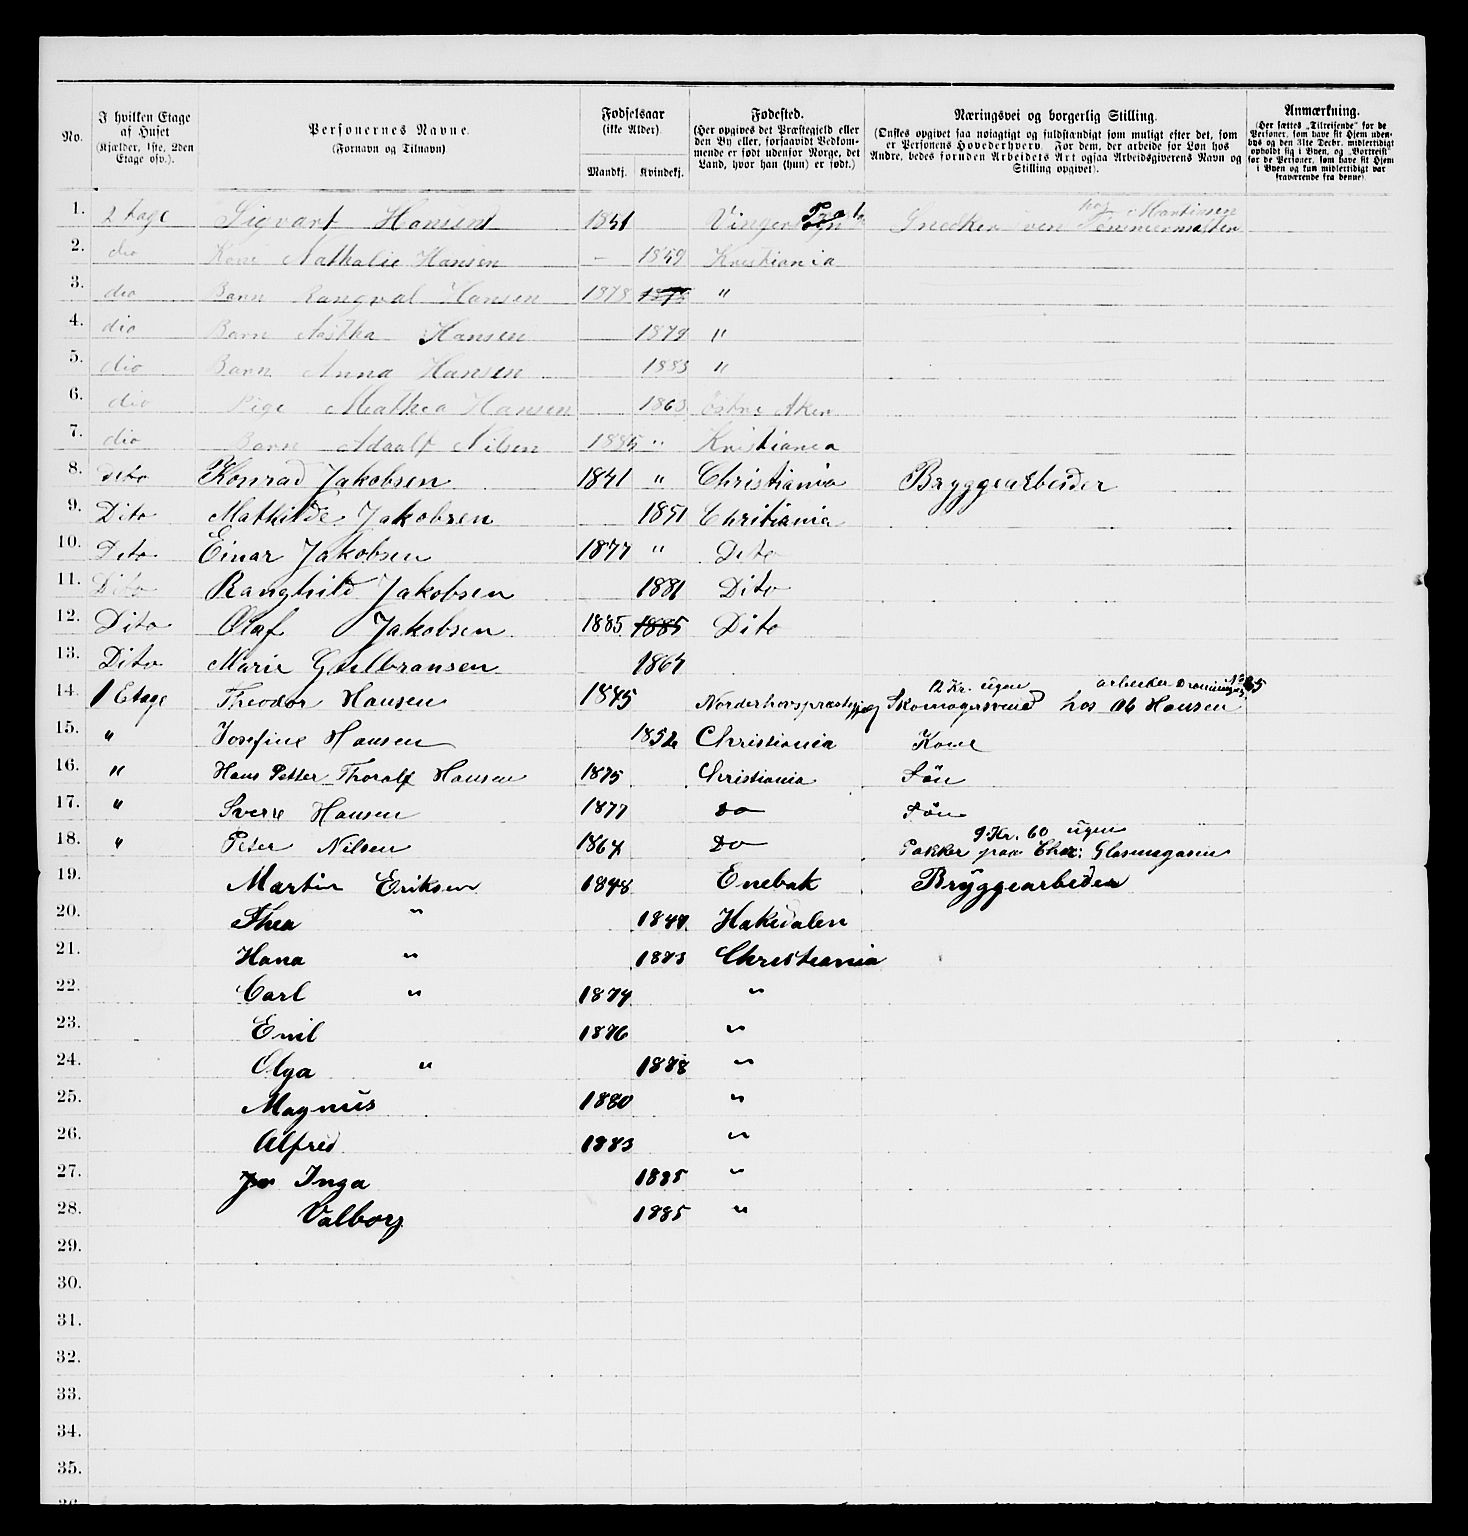 No. | I hvilken Etage af Huset (Kjælder, 1ste, 2den Etage osv.). | Personernes Navne. (Fornavn og Tilnavn) | Fødselsaar (ikke Alder). Mandkj. | Kvindekj. | Fødested. (Her opgives det Præstegjeld eller den By eller, forsaavidt Vedkommende er født udenfor Norge, det Land, hvor han (hun) er født.) | Næringsvei og borgerlig Stilling. (Ønskes opgivet saa nøiagtigt og fuldstændigt som muligt efter det, som er Personens Hovederhverv. For dem, der arbeide for Løn hos Andre, bedes foruden Arbeidets Art ogsaa Arbeidsgiverens Navn og Stilling opgivet). | Anmærkning. (Her sættes „Tilreisende" for de Personer, som have sit Hjem udenbys og den 31te Decbr. midlertidigt opholdt sig i Byen, og „Bortreist" for de Personer, som have sit Hjem i Byen og kun midlertidigt var fraværende fra denne).
1. 2 tage Sigvart Hansen 1851 Vinger Snedkersven hos Martinsen
2. dio Kone Nathalie Hansen – 1859 Kristiania
3. dio Barn Rangval Hansen 1878 1878 "
4. dio Barn Hansen 1879 "
5. dio Barn Anna Hansen 1883 "
6. dio Pige Mathea Hansen 1863 Østre Aker
7. dio Barn Adaalf Nilsen 1885 " Kristiania
8. Dito Konrad Jakobsen 1841 " Christiania Bryggearbeider
9. Dito Mathilde Jakobsen 1851 Chritiania
10. Dito Einar Jakobsen 1877 " Dito
11. Dito Ranghild Jakobsen 1881 Dito
12. Dito Olaf Jakobsen 1885 1885 Dito
13. Dito Marie Gulbransen 1867
14. 1 Etage Theodor Hansen 1845 Norderhovspræstegj Skomagersvend hos Ab Hansen 12 Kr. ugen arbeider
15. " Josefine Hansen 1852 Christiania Kone
16. " Hans Petter Thoralf Hansen 1875 Christiania Søn
17. " Sverre Hansen 1877 Do Søn
18. " Peter Nilsen 1867 Do Pakker paa Chr: Glasmagasin 9 Kr. 60 ugen
19. Martin Eriksen 1848 Enebak Bryggearbeider
20. Thea " 1847 Hakedalen
21. Hana " 1873 Christiania
22. Carl " 1874 "
23. Emil 1876 "
24. Olga " 1878 "
25. Magnus 1880 "
26. Alfred 1883 "
27. Inga 1885 "
28. Valborg 1885 "
29.
30.
31.
32.
33.
34.
35.